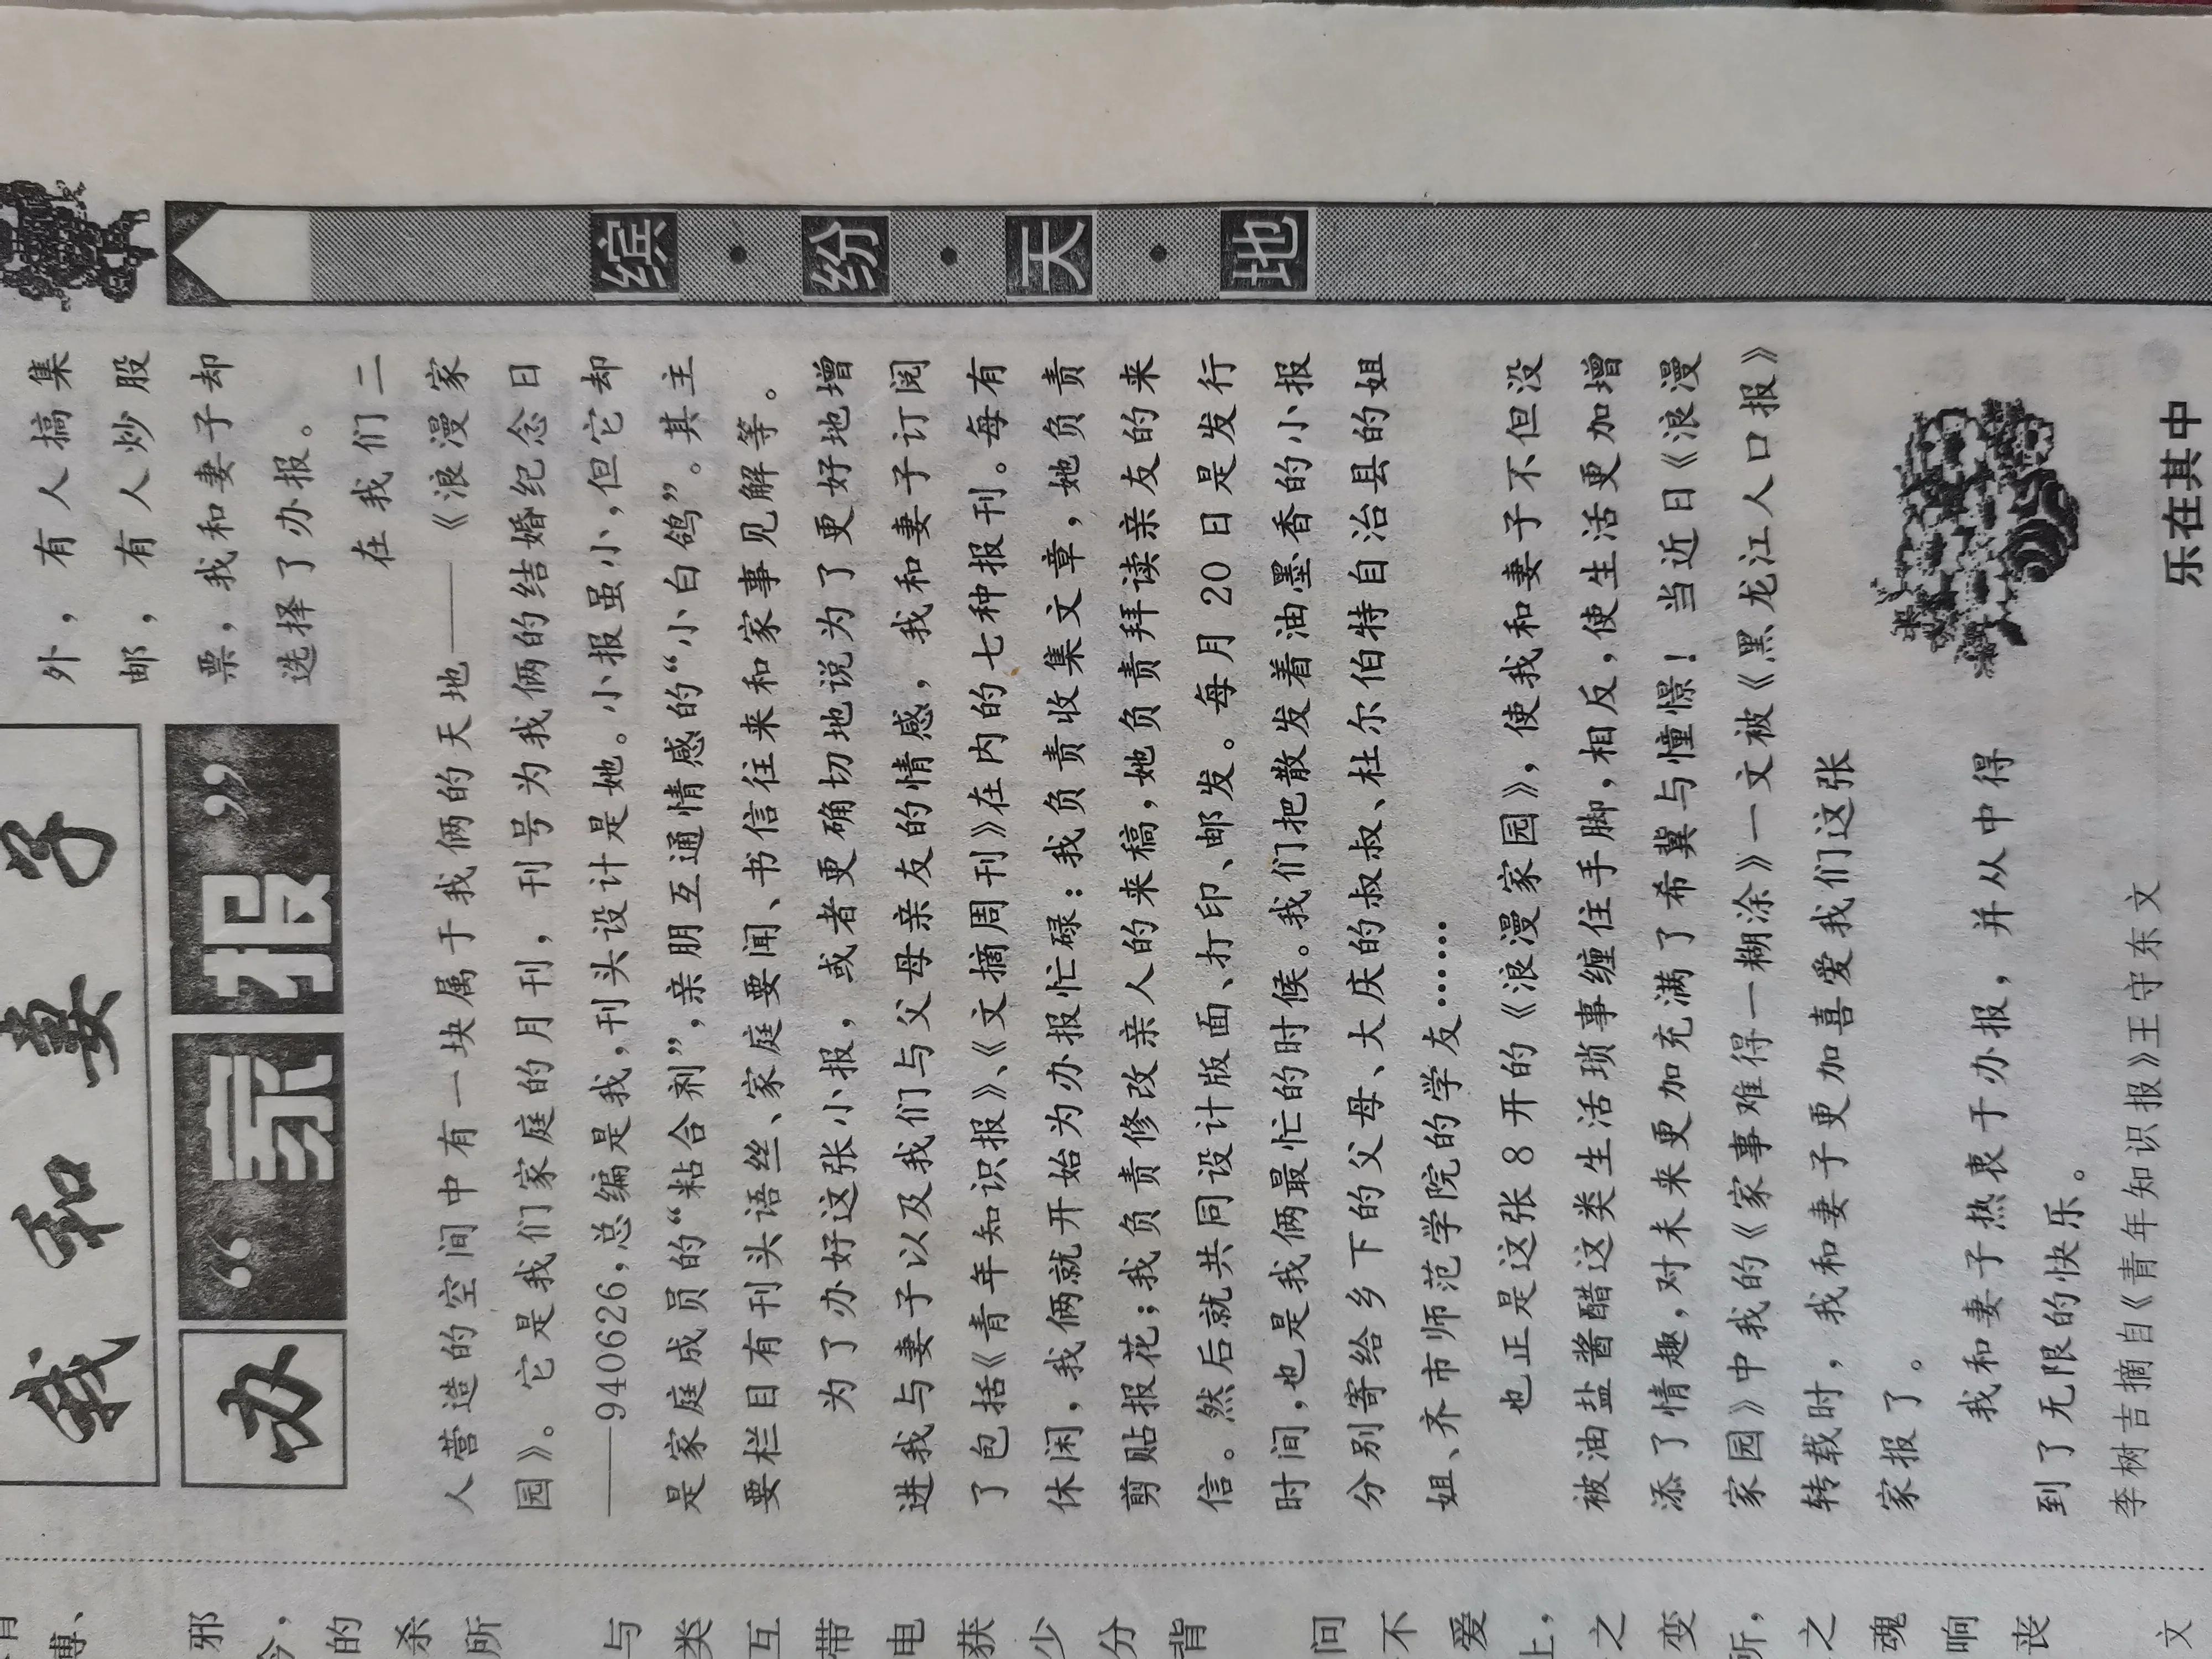 我和妻子
办“家报”
外，有人搞集
邮，有人炒股
票，我和妻子却
选择了办报。
在我们二
人营造的空间中有一块属于我俩的天地——《浪漫家
园》。它是我们家庭的月刊，刊号为我俩的结婚纪念日
——940626，总编是我，刊头设计是她。小报虽小，但它却
是家庭成员的“粘合剂”，亲朋互通情感的“小白鸽”。其主
要栏目有刊头语丝、家庭要闻、书信往来和家事见解等。
为了办好这张小报，或者更确切地说为了更好地增
进我与妻子以及我们与父母亲友的情感，我和妻子订阅
了包括《青年知识报》、《文摘周刊》在内的七种报刊。每有
休闲，我俩就开始为办报忙碌：我负责收集文章，她负责
剪贴报花；我负责修改亲人的来稿，她负责拜读亲友的来
信。然后就共同设计版面、打印、邮发。每月20日是发行
时间，也是我俩最忙的时候。我们把散发着油墨香的小报
分别寄给乡下的父母、大庆的叔叔、杜尔伯特自治县的姐
姐、齐市师范学院的学友……
也正是这张8开的《浪漫家园》，使我和妻子不但没
被油盐酱醋这类生活琐事缠住手脚，相反，使生活更加增
添了情趣，对未来更加充满了希冀与憧憬！当近日《浪漫
家园》中我的《家事难得一糊涂》一文被《黑龙江人口报》
转载时，我和妻子更加喜爱我们这张
家报了。
我和妻子热衷于办报，并从中得
到了无限的快乐。
李树吉摘自《青年知识报》王守东文
乐在其中
缤·纷·天·地
博、
邪
今，
的
杀
所
与
类
互
带
电
获
少
分
背
问
不
爱
上，
之
变
所，
之
魂
响
丧
文